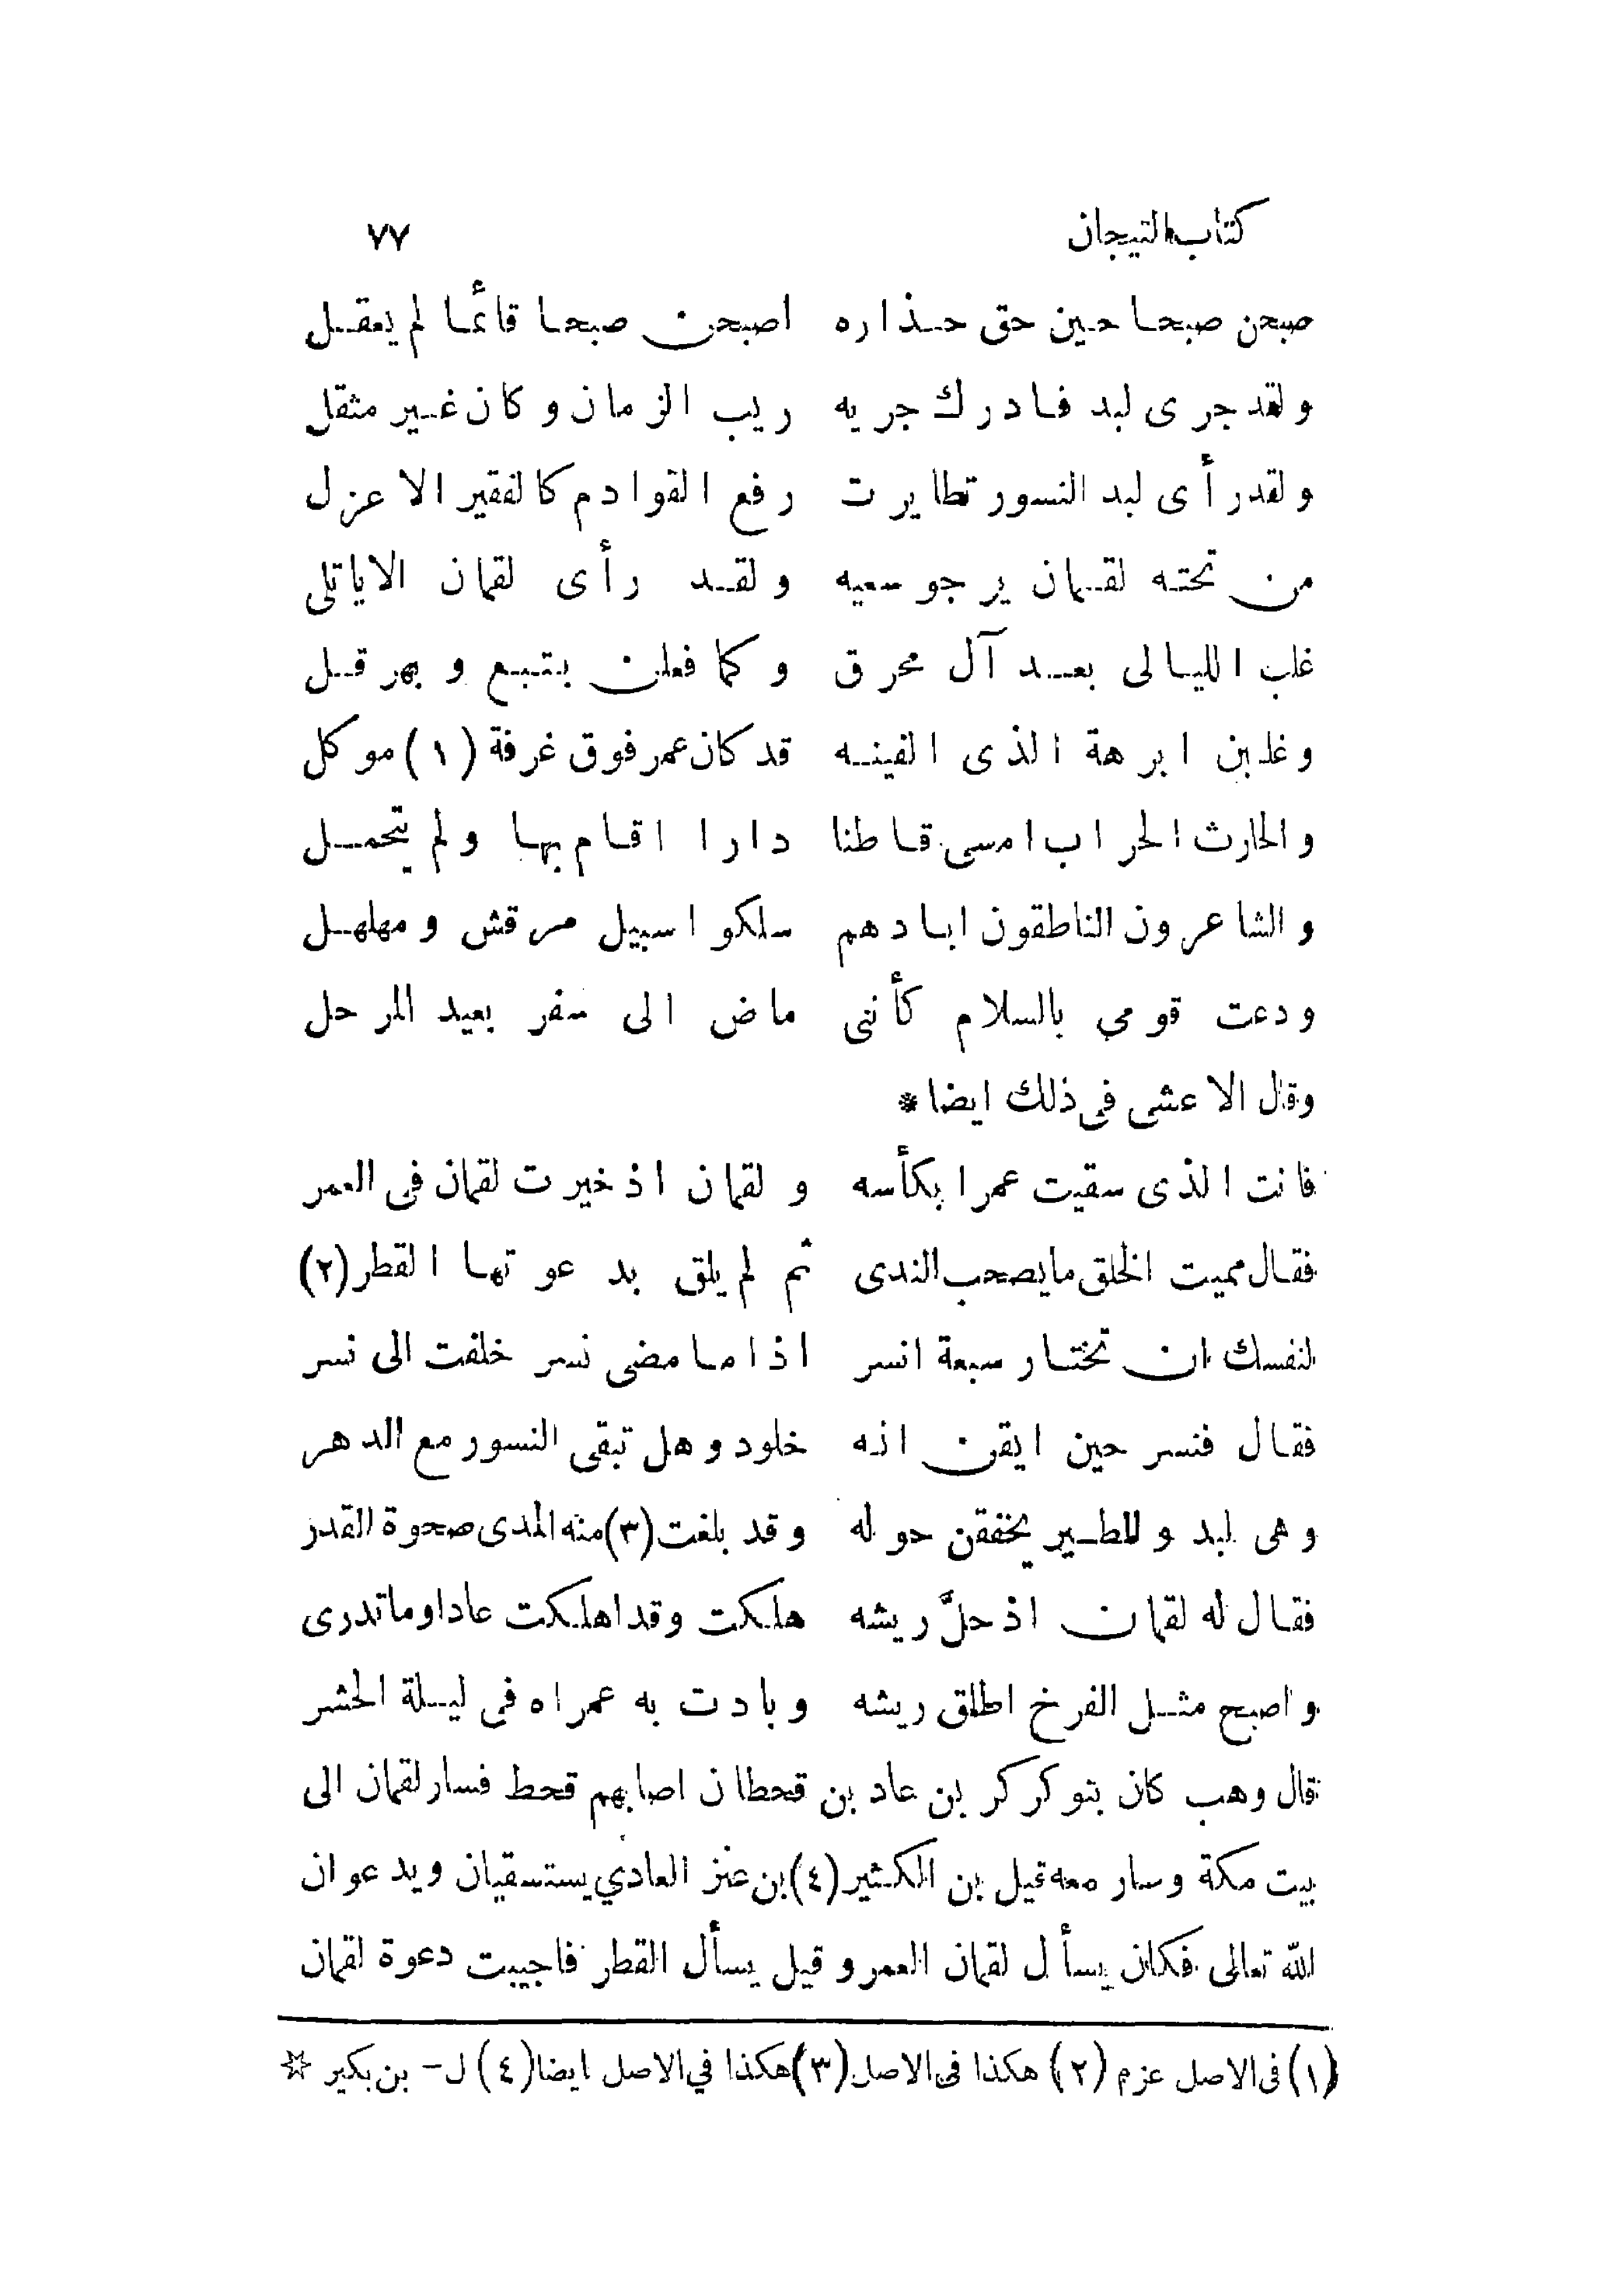 كتاب التيجان ٧٧
صبحن صبحا حين حق حذاره اصبحن صبحا قائما لم يعقل
ولقد جرى لبد فادرك جريه ريب الزمان وكان غير مثقل
ولقد رأى لبد النسور تطايرت رفع القوادم كالفقير الاعزل
من تحته لقمان يرجو سعيه ولقد رأى لقمان الاياتلى
غلب الليالى بعد آل محرق وكما فعلن بتبع وبهرقل
وغلبن ابرهة الذى الفينه قد كان عمر فوق غرفة (١) موكل
والحارث الحراب امسى قاطنا دارا اقام بها ولم يتحمل
والشاعرون الناطقون ابادهم سلكوا سبيل مرقش ومهلهل
ودعت قومى بالسلام كأننى ماض الى سفر بعيد المرحل
وقال الاعشى فى ذلك ايضا *
فانت الذى سقيت عمرا بكأسه ولقمان اذ خيرت لقمان فى العمر
فقال مميت الخلق مايصحب الندى ثم لم يلق بد عوتها القطر (٢)
لنفسك ان تختار سبعة انسر اذا ما مضى نسر خلفت الى نسر
فقال فنسر حين ايقن انه خلود وهل تبقى النسور مع الدهر
وهى لبد والطير يخفقن حوله وقد بلغت (٣) منه المدى صحوة القدر
فقال له لقمان اذ حلّ ريشه هلكت وقد اهلكت عادا وماتدرى
واصبح مثل الفرخ اطلق ريشه وبادت به عمراه فى ليلة الحشر
قال وهب كان بنو كركر بن عاد بن قحطان اصابهم قحط فسار لقمان الى
بيت مكة وسار معه قيل بن الكثير (٤) بن عنز العادي يستسقيان ويدعوان
الله تعالى فكان يسأل لقمان العمر وقيل يسأل القطر فاجيبت دعوة لقمان
(١) فى الاصل عزم (٢) هكذا فى الاصل (٣) هكذا في الاصل ايضا (٤) ل - بن بكير *